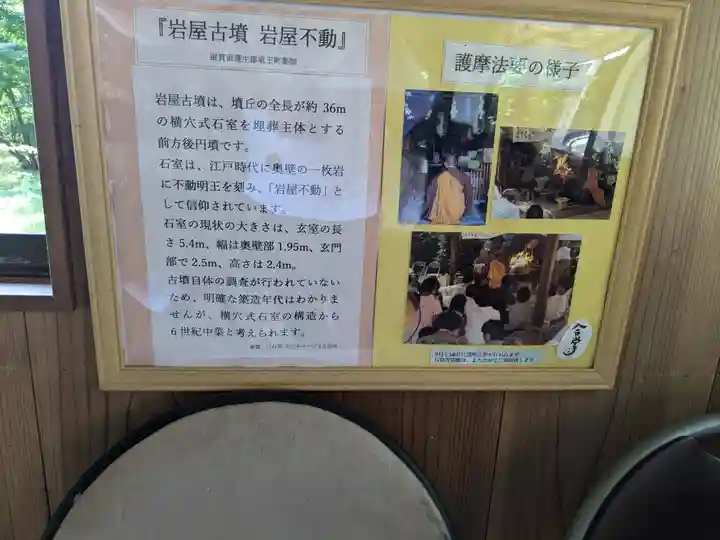 『岩屋古墳 岩屋不動』
滋賀県蒲生郡竜王町薬師
岩屋古墳は、墳丘の全長が約 36m
の横穴式石室を埋葬主体とする
前方後円墳です。
石室は、江戸時代に奥壁の一枚岩
に不動明王を刻み、「岩屋不動」と
して信仰されています。
石室の現状の大きさは、玄室の長
さ 5.4m、幅は奥壁部 1.95m、玄門
部で 2.5m、高さは 2.4m。
古墳自体の調査が行われていない
ため、明確な築造年代はわかりま
せんが、横穴式石室の構造から
６世紀中葉と考えられます。
護摩法要の様子